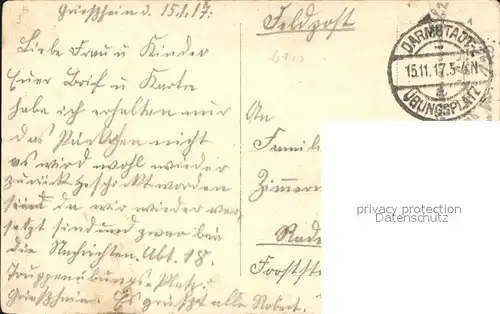 Griesheim d. 15.1.17.
Liebe Frau u Kinder
Euer Brief u Karte
habe ich erhalten nur
das Päckchen nicht
es wird wohl wieder
zurück geschickt worden
sind da wir wieder ver
setzt sind und zwar bei
die Nachrichten Abt. 18.
Truppenübungs-Platz.
Griesheim. Es grüßt alle Robert.
Feldpost
DARMSTADT
15.11.17.5-4N
ÜBUNGSPLATZ
An
Famili
Zimmerm
Rade
Forststr
privacy protection
Datenschutz